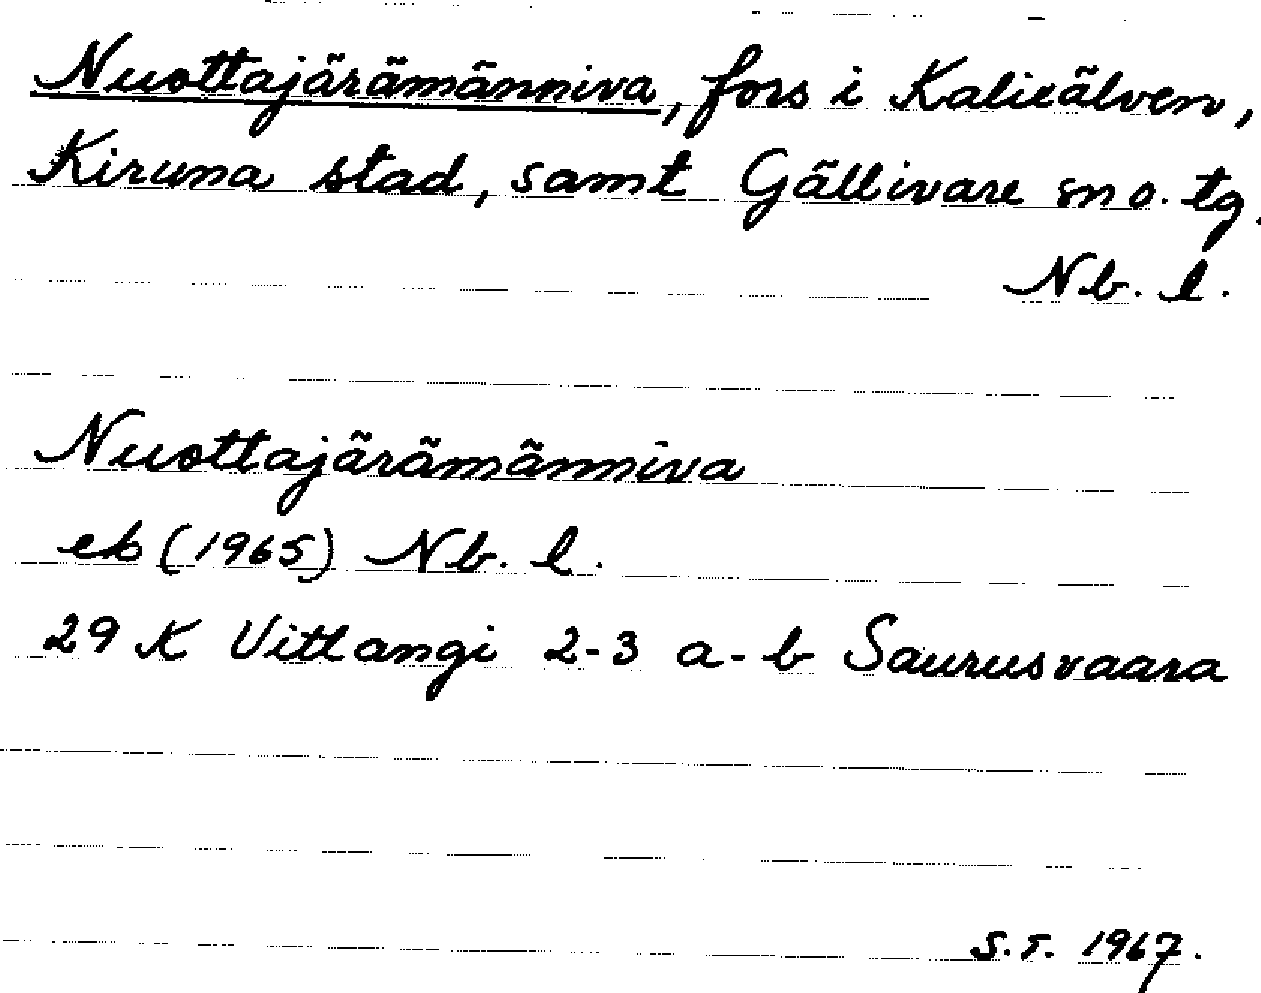 Nuottajärämänniva, fors i Kalixälven,
Kiruna stad, samt Gällivare sn o. tg.
Nb. l.
Nuottajärämänniva
ek (1965) Nb. l.
29 K Vittangi 2-3 a-b Saurusvaara
S.T. 1967.